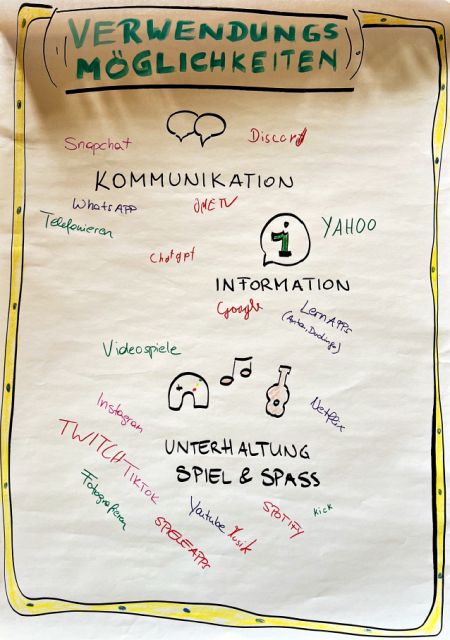 VERWENDUNGS
MÖGLICHKEITEN
Snapchat
Discord
KOMMUNIKATION
WhatsAPP
OMETV
Telefonieren
YAHOO
i
Chatgpt
INFORMATION
Google
LernAPPs
(Anton, Duolingo)
Videospiele
Instagram
Netflix
TWITCH
UNTERHALTUNG
SPIEL & SPASS
TIKTOK
Fotografieren
Youtube
Musik
SPOTIFY
kick
SPIELEAPPS